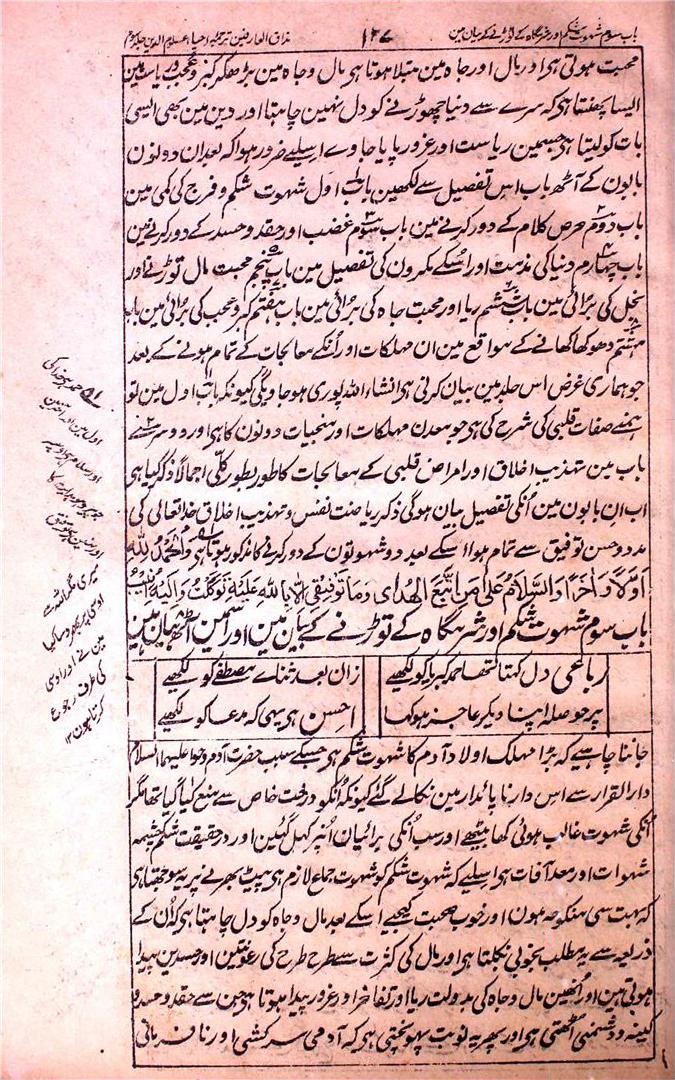 باب سوم شہوت شکم اور شرمگاہ کے توڑنے کے بیان مین
۱۲۷
مذاق العارفین ترجمہ احیاء علوم الدین جلد سوم
محبت ہوتی ہی اور مال اور جاہ مین مبتلا ہوتا ہی مال و جاہ مین بڑھکر کبر و عجب و ریاست مین
ایسا پھنستا ہی کہ سرے سے دنیا چھوڑنے کو دل نہین چاہتا اور دین مین بھی ایسی
بات کو لیتا ہی جسمین ریاست اور غرور پایا جاوے اسلیے ضرور ہوا کہ بعد ان دونون
بابون کے آٹھ باب اس تفصیل سے لکھین باب اول شہوت شکم و فرج کی کمی مین
باب دوم حرص کلام کے دور کرنے مین باب سوم غضب اور حقد و حسد کے دور کرنے مین
باب چہارم دنیا کی مذمت اور اسکے مکرون کی تفصیل مین باب پنجم محبت مال توڑنے اور
بخل کی برائی مین باب ششم ریا اور محبت جاہ کی برائی مین باب ہفتم کبر و عجب کی برائی مین باب
ہشتم دھوکھا کھانے کے مواقع مین ان مہلکات اور انکے معالجات کے تمام ہونے کے بعد
جو ہماری غرض اس جلد مین بیان کرنی ہی انشاء اللہ پوری ہو جاویگی کیونکہ باب اول مین تو
ہمنے صفات قلبی کی شرح کی ہی جو معدن مہلکات اور منجیات دونون کا ہی اور دوسرے
باب مین تہذیب اخلاق اور امراض قلبی کے معالجات کا طور بطور کلی اجمالاً ذکر کیا ہی
اب ان بابون مین انکی تفصیل بیان ہوگی ذکر ریاضت نفس و تہذیب اخلاق خدا تعالی کی
مدد و حسن توفیق سے تمام ہوا اسکے بعد دو شہوتون کے دور کرنے کا مذکور ہوتا ہی وَالْحَمْدُ لِلّٰهِ
اَوَّلًا وَّاٰخِرًا وَالسَّلَامُ عَلٰی مَنِ اتَّبَعَ الْهُدٰی وَمَا تَوْفِیْقِیْ اِلَّا بِاللّٰهِ عَلَیْهِ تَوَکَّلْتُ وَاِلَیْهِ اُنِیْبُ
باب سوم شہوت شکم اور شرمگاہ کے توڑنے کے بیان مین اور اسمین آٹھ بیان ہین
رباعی دل کہتا تھا حمد کبریا کو لکھیے
زان بعد ثنائے مصطفے کو لکھیے
پر حوصلہ اپنا دیکر عاجز ہو کہا
احسن ہی یہی کہ مدعا کو لکھیے
جاننا چاہیے کہ بڑا مہلک اولاد آدم کا شہوت شکم ہی جسکے سبب حضرت آدم و حوا علیہما السلام
دار القرار سے اس دار ناپائدار مین نکالے گئے کیونکہ انکو درخت خاص سے منع کیا گیا تھا مگر
انکی شہوت غالب ہوئی کھا بیٹھے اور سب انکی برائیان انپر کھل گئین اور در حقیقت شکم چشمہ
شہوات اور معد آفات ہی اسلیے کہ شہوت شکم کو شہوت جماع لازم ہی پیٹ بھرنے پر یہ سوجھتا ہی
کہ بہت سی منکوحہ ہون اور خوب صحبت کیجیے اسکے بعد مال و جاہ کو دل چاہتا ہی کہ ان کے
ذریعہ سے یہ مطلب بخوبی نکلتا ہی اور مال کی کثرت سے طرح طرح کی رعونتین اور حسدین پیدا
ہوتی ہین اور انھین مال و جاہ کی بدولت ریا اور تفاخر اور غرور پیدا ہوتا ہی جن سے حقد و حسد و
کینہ و دشمنی اٹھتی ہی اور پھر یہ نوبت پہونچتی ہی کہ آدمی سرکشی اور نافرمانی
حمد ہی خدا کی
اول مین اور آخر مین
اور سلام ہی اوپر
جو پیرو ہو ہدایت کا
اور نہین ہی توفیق
میری مگر اللہ سے
اوسی پر بھروسا کیا
مین نے اور اوسی
کی طرف رجوع
کرتا ہون ۱۲